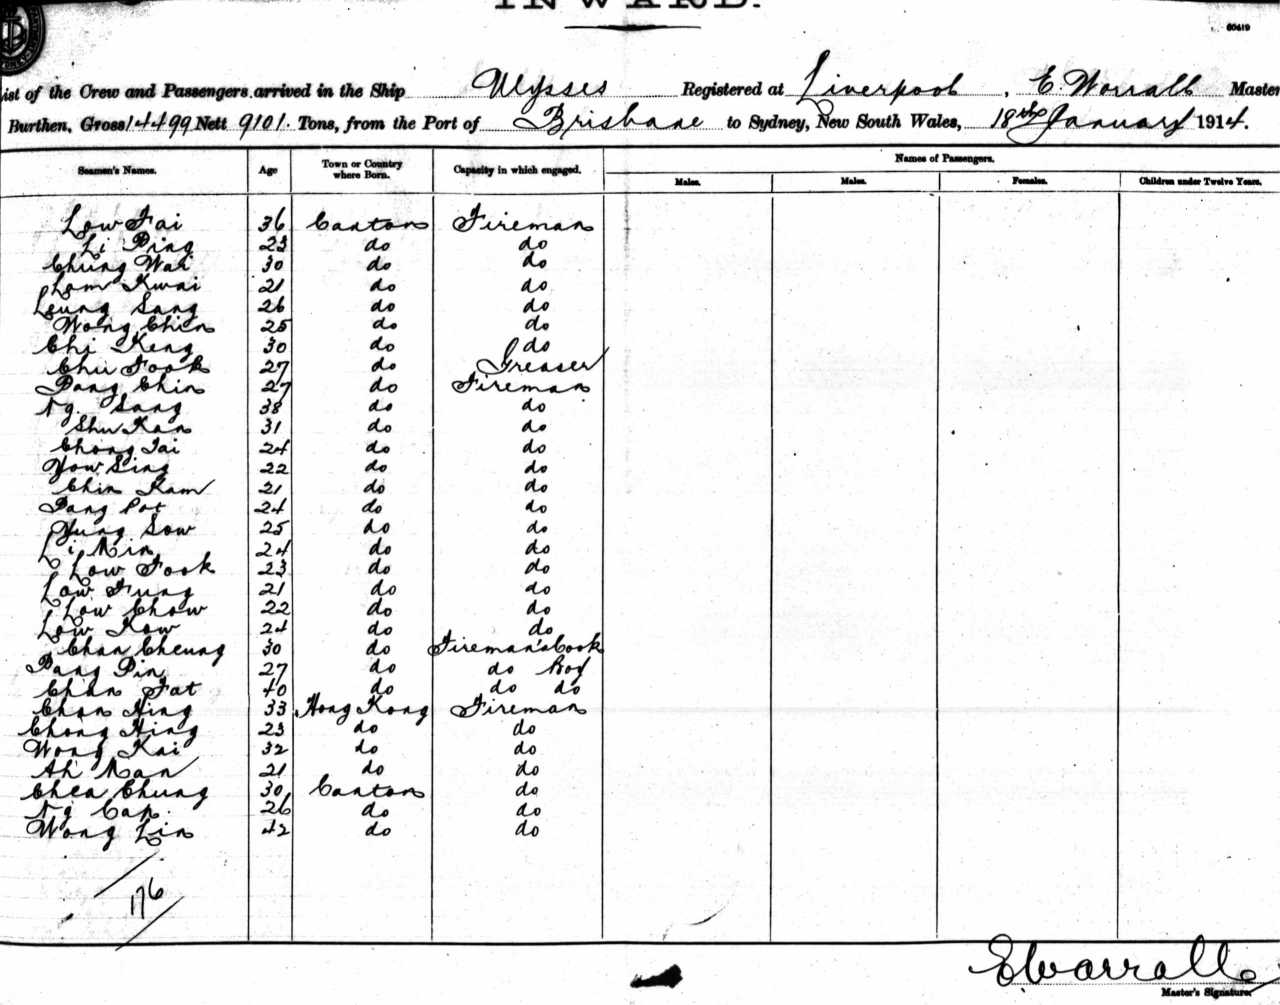 INWARD.
60419
List of the Crew and Passengers arrived in the Ship Ulysses Registered at Liverpool, E. Worrall Master
Burthen, Gross 14499 Nett 9101. Tons, from the Port of Brisbane to Sydney, New South Wales, 18th January 1914.
Seamen's Names. Age Town or Country where Born. Capacity in which engaged. Names of Passengers.
Males. Males. Females. Children under Twelve Years.
Low Fai 36 Canton Fireman
Li Ping 23 do do
Chung Wah 30 do do
Lam Kwai 21 do do
Leung Sang 26 do do
Wong Chin 25 do do
Chi Keng 30 do do
Chu Fook 27 do Greaser
Pang Chin 27 do Fireman
Ng. Sang 38 do do
Shu Kan 31 do do
Chong Tai 24 do do
Yow Sing 22 do do
Chin Kam 21 do do
Pang Pot 24 do do
Yung Sow 25 do do
Li Min 24 do do
Low Fook 23 do do
Low Fung 21 do do
Low Chow 22 do do
Low Kow 24 do do
Chan Cheung 30 do Fireman's Cook
Pang Pin 27 do do Boy
Chan Fat 40 do do do
Chan Hing 33 Hong Kong Fireman
Chong Hing 23 do do
Wong Kai 32 do do
Ah Man 21 do do
Chea Chung 30 Canton do
Ng Cap. 26 do do
Wong Lin 42 do do
176
E Worrall
Master's Signature